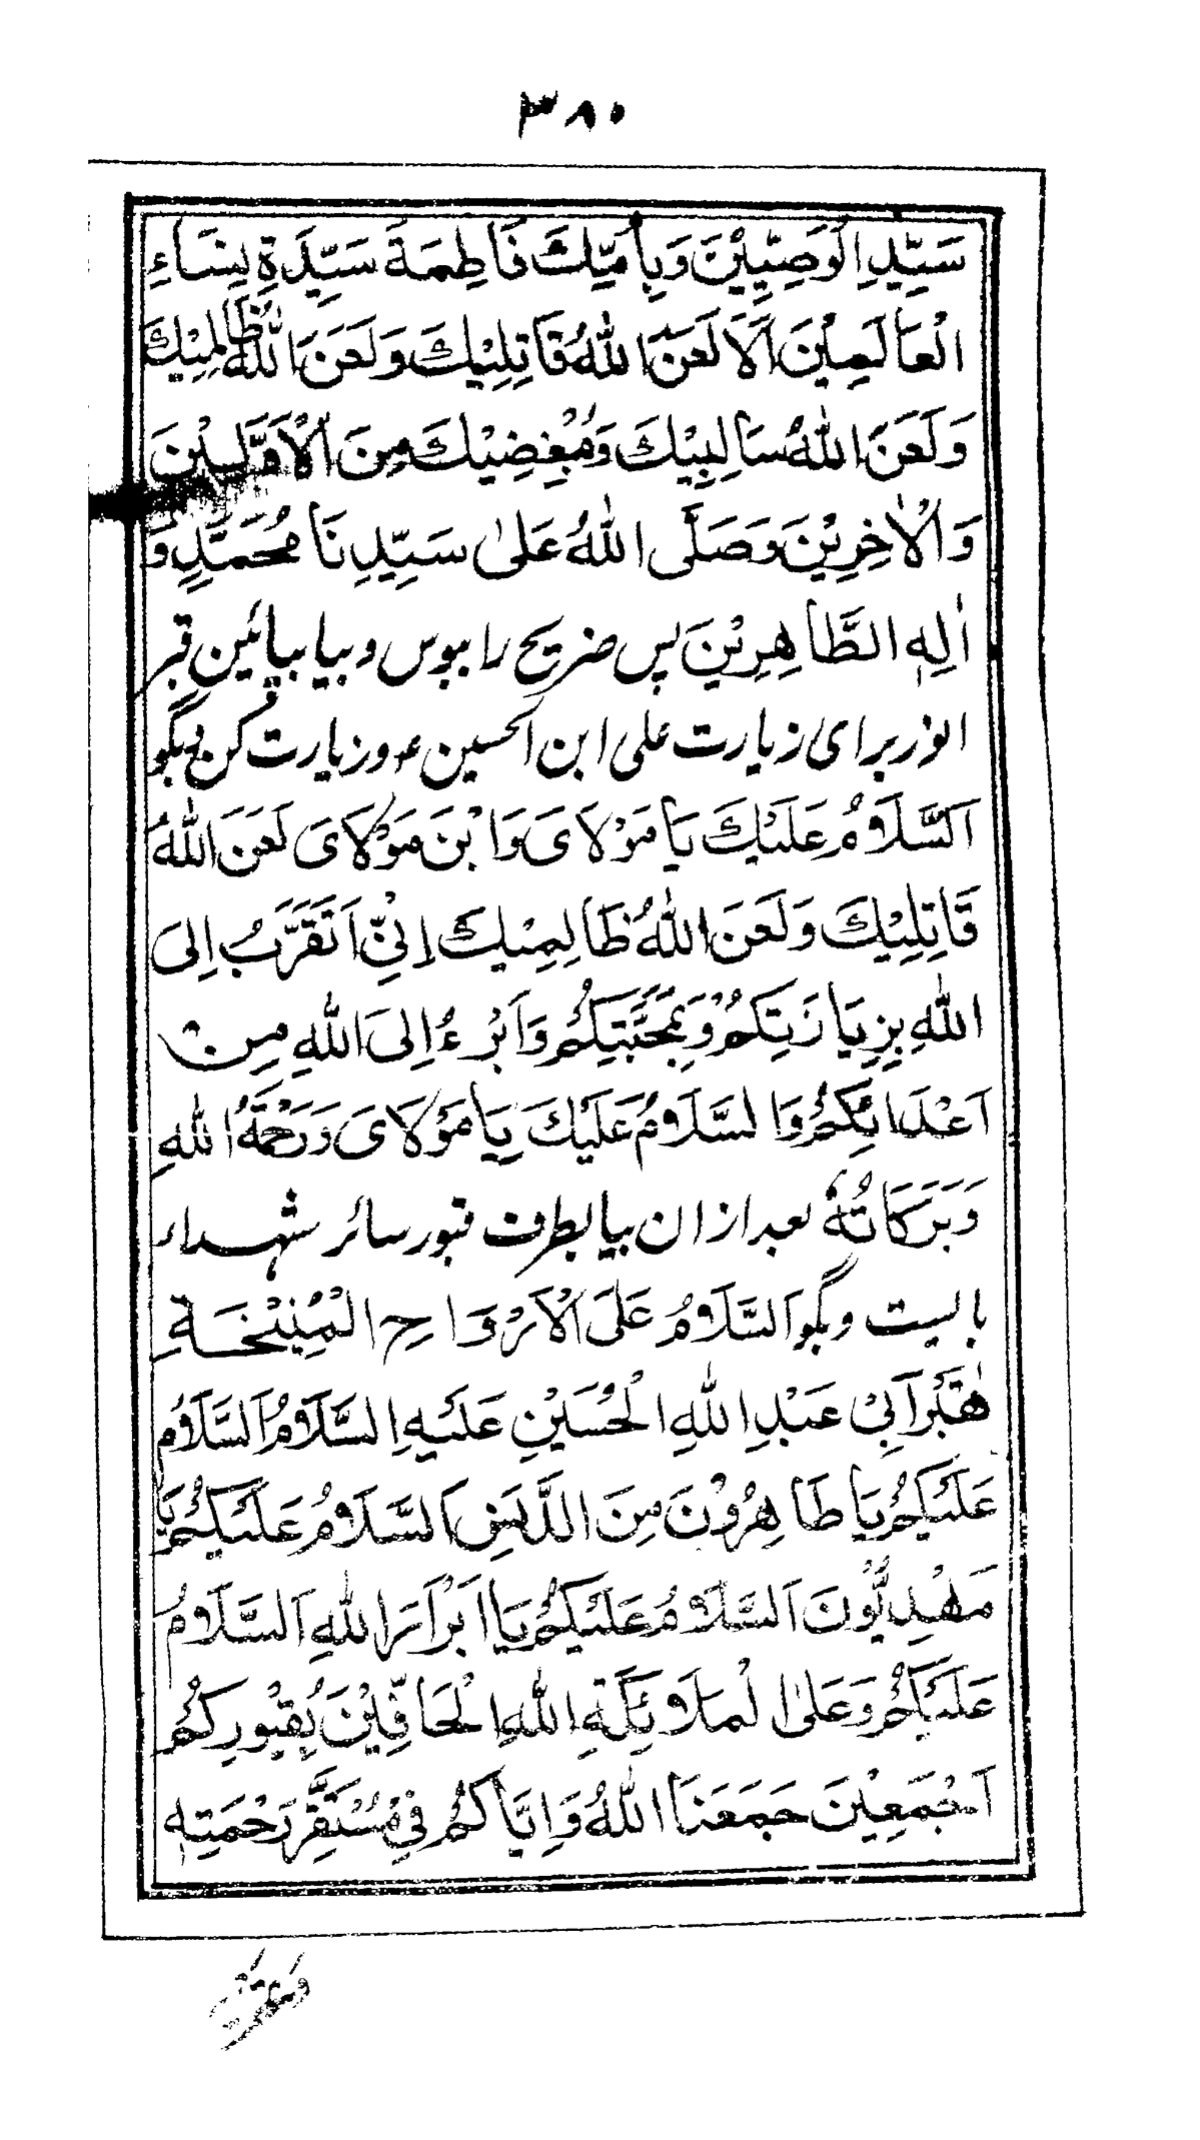 ۳۸۰
سَيِّدِ الْوَصِيِّيْنَ وَبِاُمِّكَ فَاطِمَةَ سَيِّدَةِ نِسَاءِ
الْعَالَمِيْنَ اَلَا لَعَنَ اللّٰهُ قَاتِلِيْكَ وَلَعَنَ اللّٰهُ ظَالِمِيْكَ
وَلَعَنَ اللّٰهُ سَالِبِيْكَ وَمُبْغِضِيْكَ مِنَ الْاَوَّلِيْنَ
وَالْاٰخِرِيْنَ وَصَلَّى اللّٰهُ عَلٰى سَيِّدِنَا مُحَمَّدٍ وَ
اٰلِهِ الطَّاهِرِيْنَ پس ضریح را ببوس و بیا بپائین قبر
انور برای زیارت علی ابن الحسین ع و زیارت کن بگو
اَلسَّلَامُ عَلَيْكَ يَا مَوْلَاىَ وَابْنَ مَوْلَاىَ لَعَنَ اللّٰهُ
قَاتِلِيْكَ وَلَعَنَ اللّٰهُ ظَالِمِيْكَ اِنِّىْ اَتَقَرَّبُ اِلَى
اللّٰهِ بِزِيَارَتِكُمْ وَبِمَحَبَّتِكُمْ وَاَبْرَءُ اِلَى اللّٰهِ مِنْ
اَعْدَائِكُمْ وَالسَّلَامُ عَلَيْكَ يَا مَوْلَاىَ وَرَحْمَةُ اللّٰهِ
وَبَرَكَاتُهٗ بعد ازان بیا بطرف قبور سائر شہداء
بالیست وبگو اَلسَّلَامُ عَلَى الْاَرْوَاحِ الْمُنِيْخَةِ
بِقَبْرِ اَبِىْ عَبْدِ اللّٰهِ الْحُسَيْنِ عَلَيْهِ السَّلَامُ اَلسَّلَامُ
عَلَيْكُمْ يَا طَاهِرُوْنَ مِنَ الدَّنَسِ اَلسَّلَامُ عَلَيْكُمْ يَا
مَهْدِيُّوْنَ اَلسَّلَامُ عَلَيْكُمْ يَا اَبْرَارَ اللّٰهِ اَلسَّلَامُ
عَلَيْكُمْ وَعَلٰى الْمَلَائِكَةِ اللّٰهِ الْحَافِّيْنَ بِقُبُوْرِكُمْ
اَجْمَعِيْنَ جَمَعَنَا اللّٰهُ وَاِيَّاكُمْ فِىْ مُسْتَقَرِّ رَحْمَتِهٖ